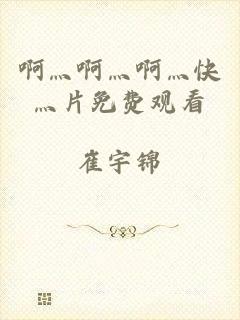 啊灬啊灬啊灬快
灬片免费观看
崔宇锦